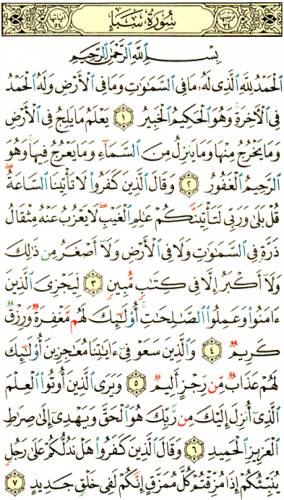 سُورَةُ سَبَإٍ
بِسْمِ ٱللَّهِ ٱلرَّحْمَٰنِ ٱلرَّحِيمِ
ٱلْحَمْدُ لِلَّهِ ٱلَّذِى لَهُۥ مَا فِى ٱلسَّمَٰوَٰتِ وَمَا فِى ٱلْأَرْضِ وَلَهُ ٱلْحَمْدُ
فِى ٱلْءَاخِرَةِ وَهُوَ ٱلْحَكِيمُ ٱلْخَبِيرُ ١ يَعْلَمُ مَا يَلِجُ فِى ٱلْأَرْضِ
وَمَا يَخْرُجُ مِنْهَا وَمَا يَنزِلُ مِنَ ٱلسَّمَآءِ وَمَا يَعْرُجُ فِيهَا وَهُوَ
ٱلرَّحِيمُ ٱلْغَفُورُ ٢ وَقَالَ ٱلَّذِينَ كَفَرُوا۟ لَا تَأْتِينَا ٱلسَّاعَةُ
قُلْ بَلَىٰ وَرَبِّى لَتَأْتِيَنَّكُمْ عَٰلِمِ ٱلْغَيْبِ لَا يَعْزُبُ عَنْهُ مِثْقَالُ
ذَرَّةٍ فِى ٱلسَّمَٰوَٰتِ وَلَا فِى ٱلْأَرْضِ وَلَآ أَصْغَرُ مِن ذَٰلِكَ
وَلَآ أَكْبَرُ إِلَّا فِى كِتَٰبٍ مُّبِينٍ ٣ لِّيَجْزِىَ ٱلَّذِينَ
ءَامَنُوا۟ وَعَمِلُوا۟ ٱلصَّٰلِحَٰتِ أُو۟لَٰٓئِكَ لَهُم مَّغْفِرَةٌ وَرِزْقٌ
كَرِيمٌ ٤ وَٱلَّذِينَ سَعَوْ فِىٓ ءَايَٰتِنَا مُعَٰجِزِينَ أُو۟لَٰٓئِكَ
لَهُمْ عَذَابٌ مِّن رِّجْزٍ أَلِيمٌ ٥ وَيَرَى ٱلَّذِينَ أُوتُوا۟ ٱلْعِلْمَ
ٱلَّذِىٓ أُنزِلَ إِلَيْكَ مِن رَّبِّكَ هُوَ ٱلْحَقَّ وَيَهْدِىٓ إِلَىٰ صِرَٰطِ
ٱلْعَزِيزِ ٱلْحَمِيدِ ٦ وَقَالَ ٱلَّذِينَ كَفَرُوا۟ هَلْ نَدُلُّكُمْ عَلَىٰ رَجُلٍ
يُنَبِّئُكُمْ إِذَا مُزِّقْتُمْ كُلَّ مُمَزَّقٍ إِنَّكُمْ لَفِى خَلْقٍ جَدِيدٍ ٧